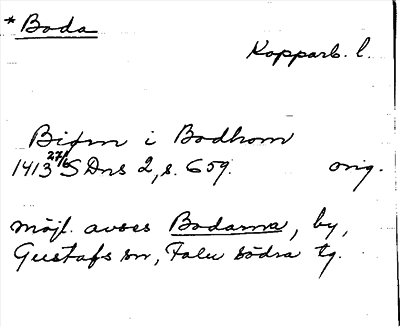 * Boda
Kopparb. l.
Bifrn i Bodhom
1413 27/6 SDns 2, s. 659. orig.
möjl. avses Bodarna, by,
Gustafs sn, Falu södra tg.